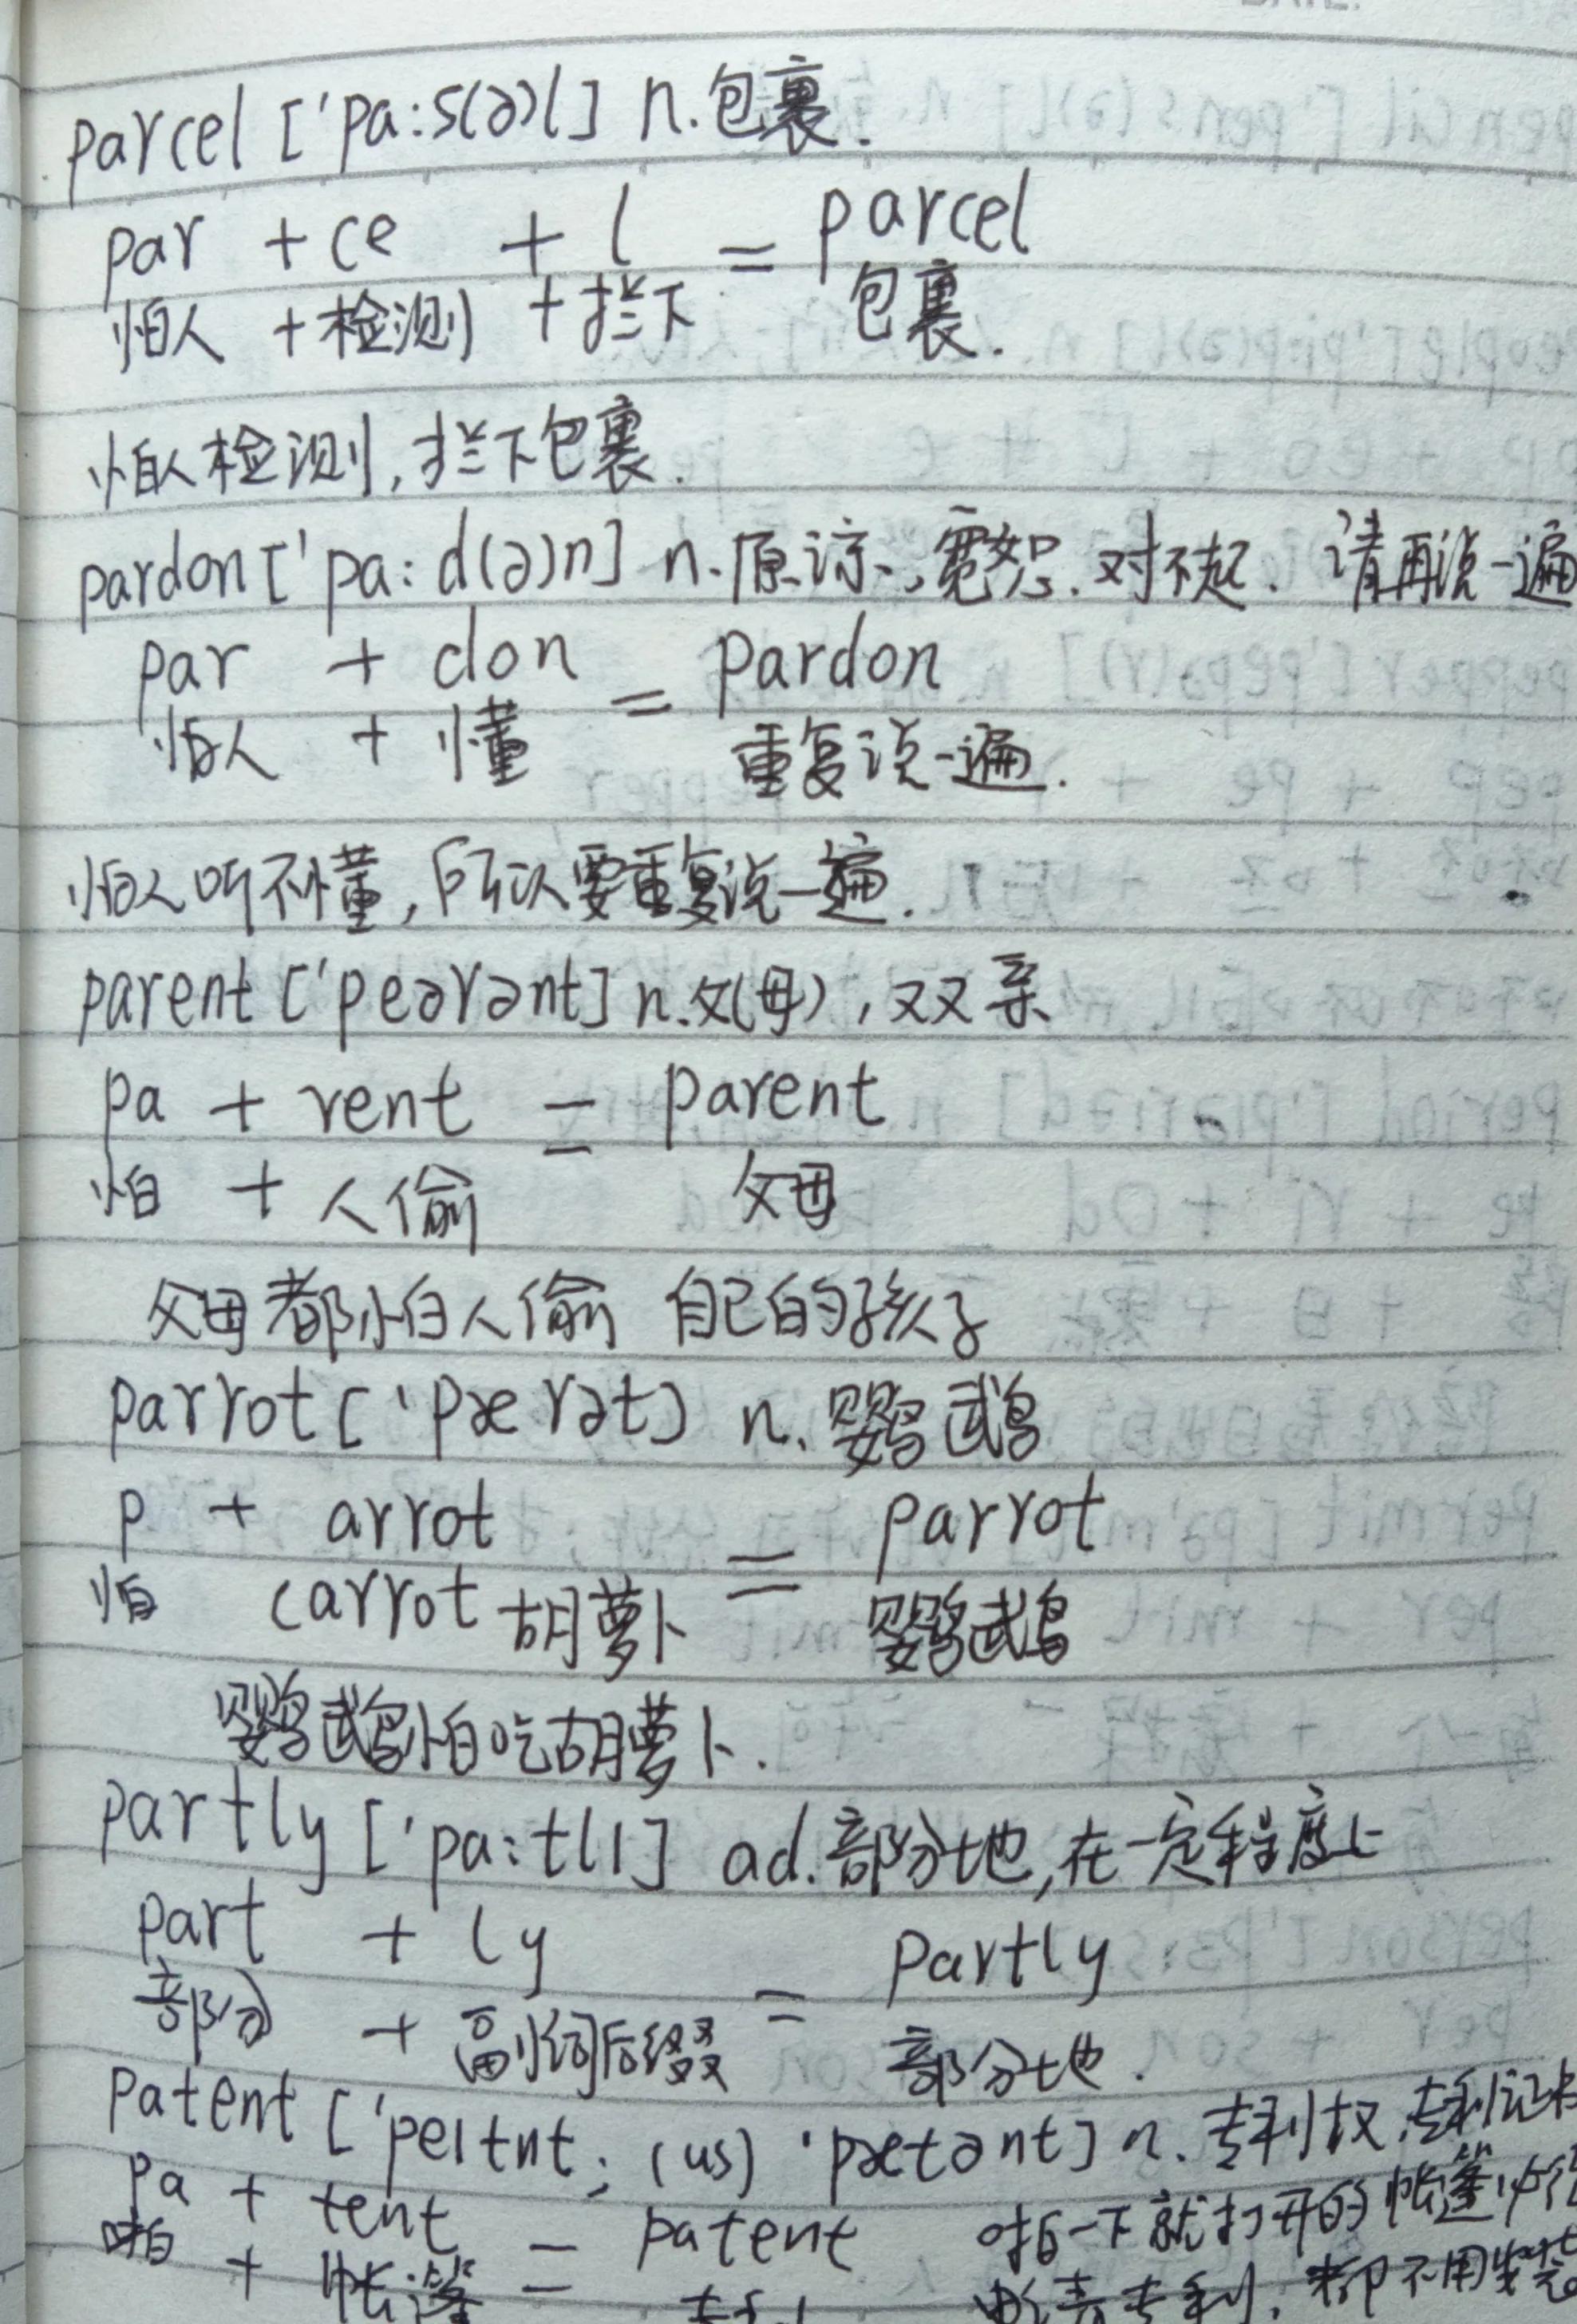 parcel ['pa:s(ə)l] n.包裹.
par + ce + l = parcel
怕人 + 检测 + 拦下 包裹.
怕人检测,拦下包裹.
pardon ['pa:d(ə)n] n.原谅,宽恕.对不起.请再说一遍
par + don = pardon
怕人 + 懂 重复说一遍.
怕人听不懂,所以要重复说一遍.
parent ['peərənt] n.父(母),双亲
pa + rent = parent
怕 + 人偷 父母
父母都怕人偷 自己的孩子
parrot ['pærət] n.鹦鹉
p + arrot = parrot
怕 carrot 胡萝卜 鹦鹉
鹦鹉怕吃胡萝卜.
partly ['pa:tlɪ] ad.部分地,在一定程度上
part + ly = partly
部分 + 副词后缀 部分地.
patent ['peɪtnt; (us) 'pætənt] n.专利权,专利证书
pa + tent = patent 啪一下就打开的帐篷
啪 + 帐篷 专利 专利, 都不用安装